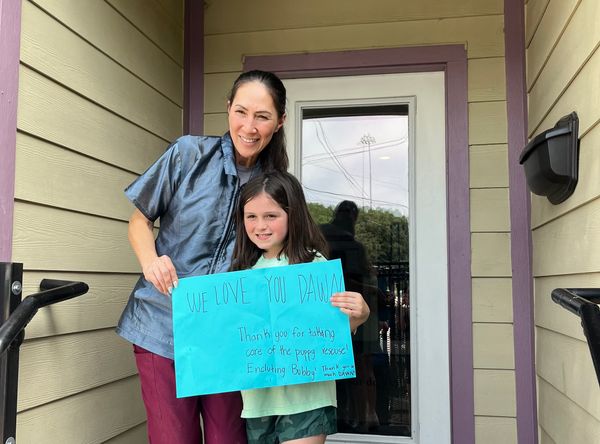 WE LOVE YOU DAWN
Thank you for taking
care of the puppy rescuse!
Encluting Bubby! Thank you so
much DAWN!